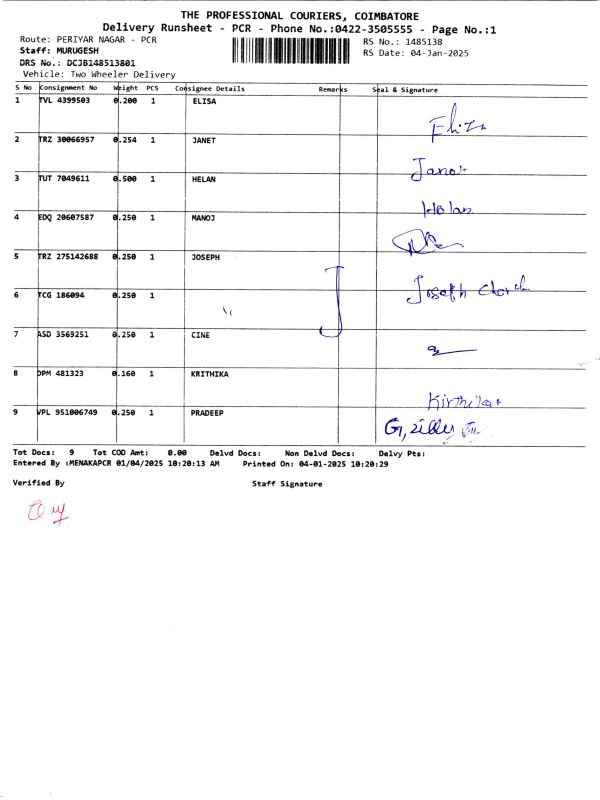 THE PROFESSIONAL COURIERS, COIMBATORE
Delivery Runsheet - PCR - Phone No.:0422-3505555 - Page No.:1
Route: PERIYAR NAGAR - PCR
RS No.: 1485138
Staff: MURUGESH
RS Date: 04-Jan-2025
DRS No.: DCJB148513801
Vehicle: Two Wheeler Delivery
S No Consignment No Weight PCS Consignee Details Remarks Seal & Signature
1 TVL 4399503 0.200 1 ELISA
Eliza
2 TRZ 30066957 0.254 1 JANET
Janet
3 TUT 7049611 0.500 1 HELAN
Helan
4 EDQ 20607587 0.250 1 MANOJ
5 TRZ 275142688 0.250 1 JOSEPH
Joseph
6 TCG 186094 0.250 1 "
7 ASD 3569251 0.250 1 CINE
8 DPM 481323 0.160 1 KRITHIKA
Kirthika
9 VPL 951006749 0.250 1 PRADEEP
Tot Docs: 9 Tot COD Amt: 0.00 Delvd Docs: Non Delvd Docs: Delvy Pts:
Entered By :MENAKAPCR 01/04/2025 10:20:13 AM Printed On: 04-01-2025 10:20:29
Verified By Staff Signature